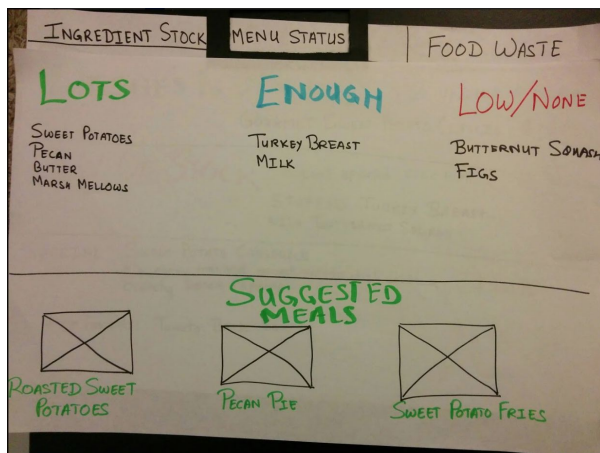 INGREDIENT STOCK
MENU STATUS
FOOD WASTE
LOTS
SWEET POTATOES
PECAN
BUTTER
MARSH MELLOWS
ENOUGH
TURKEY BREAST
MILK
LOW/NONE
BUTTERNUT SQUASH
FIGS
SUGGESTED
MEALS
ROASTED SWEET
POTATOES
PECAN PIE
SWEET POTATO FRIES